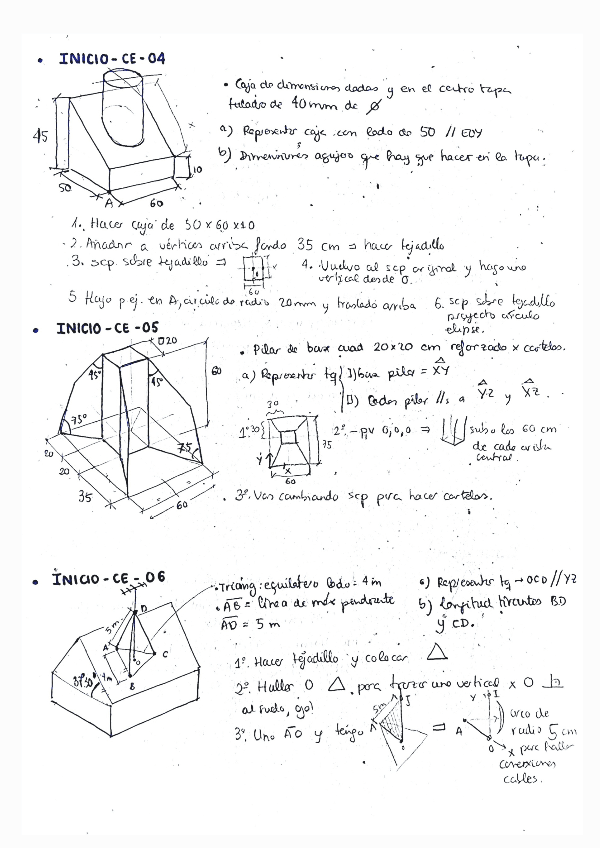 • INICIO-CE-04
• Caja de dimensiones dadas y en el centro tapa
taladro de 40mm de ⌀
a) Representar caja con lado de 50 // EOY
b) Dimensiones agujero que hay que hacer en la tapa.
45
10
50
A
60
1. Hacer caja de 50x60x10
2. Añadir a vértices arriba fondo 35 cm ⇒ hacer tejadillo
3. scp. sobre tejadillo ⇒
60
4. Vuelvo al scp original y hago una
vertical desde O.
5 Hago p ej. en A, círculo de radio 20mm y traslado arriba
6. scp sobre tejadillo
proyecto círculo
elipse.
• INICIO-CE-05
□20
45°
45°
60
75°
75
20
20
35
60
• Pilar de base cuad 20x20 cm reforzado x cartelas.
a) Representar tq
I) base pilar = XY
II) Lados pilar //s a YZ y XZ.
30
1º
30
75
Y
X
60
2º.-pv 0,0,0 ⇒
subo los 60 cm
de cada arista
central.
3º. Vas cambiando scp para hacer cartelas.
• INICIO-CE-06
D
5 m
A
C
4m
B
O
37°30'
• Triáng: equilátero lado = 4 m
• AB = línea de máx pendiente
AD = 5 m
a) Representar tq → OCD // YZ
b) longitud tirantes BD
y CD.
1º. Hacer tejadillo y colocar △
2º. Hallar O △, para trazar una vertical x O
al suelo, ojo!
3º. Uno AO y tengo
5m
A
I
O
⇒
Y
I
A
O
X
arco de
radio 5 cm
para hallar
conexiones
cables.